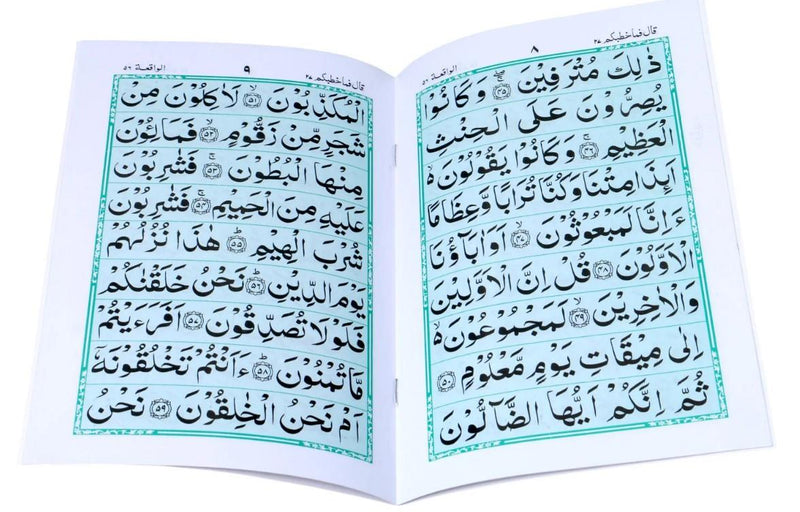 قال فما خطبكم ٢٧
٨
الواقعة ٥٦
ذٰلِكَ مُتْرَفِيْنَ ۝٤٥ وَكَانُوْا
يُصِرُّوْنَ عَلَى الْحِنْثِ
الْعَظِيْمِ ۝٤٦ وَكَانُوْا يَقُوْلُوْنَ
اَىِٕذَا مِتْنَا وَكُنَّا تُرَابًا وَّعِظَامًا
ءَاِنَّا لَمَبْعُوْثُوْنَ ۝٤٧ اَوَاٰبَآؤُنَا
الْاَوَّلُوْنَ ۝٤٨ قُلْ اِنَّ الْاَوَّلِيْنَ
وَالْاٰخِرِيْنَ ۝٤٩ لَمَجْمُوْعُوْنَ
اِلٰى مِيْقَاتِ يَوْمٍ مَّعْلُوْمٍ ۝٥٠
ثُمَّ اِنَّكُمْ اَيُّهَا الضَّآلُّوْنَ
قال فما خطبكم ٢٧
٩
الواقعة ٥٦
الْمُكَذِّبُوْنَ ۝٥١ لَاٰكِلُوْنَ مِنْ
شَجَرٍ مِّنْ زَقُّوْمٍ ۝٥٢ فَمَالِـُٔوْنَ
مِنْهَا الْبُطُوْنَ ۝٥٣ فَشٰرِبُوْنَ
عَلَيْهِ مِنَ الْحَمِيْمِ ۝٥٤ فَشٰرِبُوْنَ
شُرْبَ الْهِيْمِ ۝٥٥ هٰذَا نُزُلُهُمْ
يَوْمَ الدِّيْنِ ۝٥٦ نَحْنُ خَلَقْنٰكُمْ
فَلَوْلَا تُصَدِّقُوْنَ ۝٥٧ اَفَرَءَيْتُمْ
مَّا تُمْنُوْنَ ۝٥٨ ءَاَنْتُمْ تَخْلُقُوْنَهٗ
اَمْ نَحْنُ الْخٰلِقُوْنَ ۝٥٩ نَحْنُ